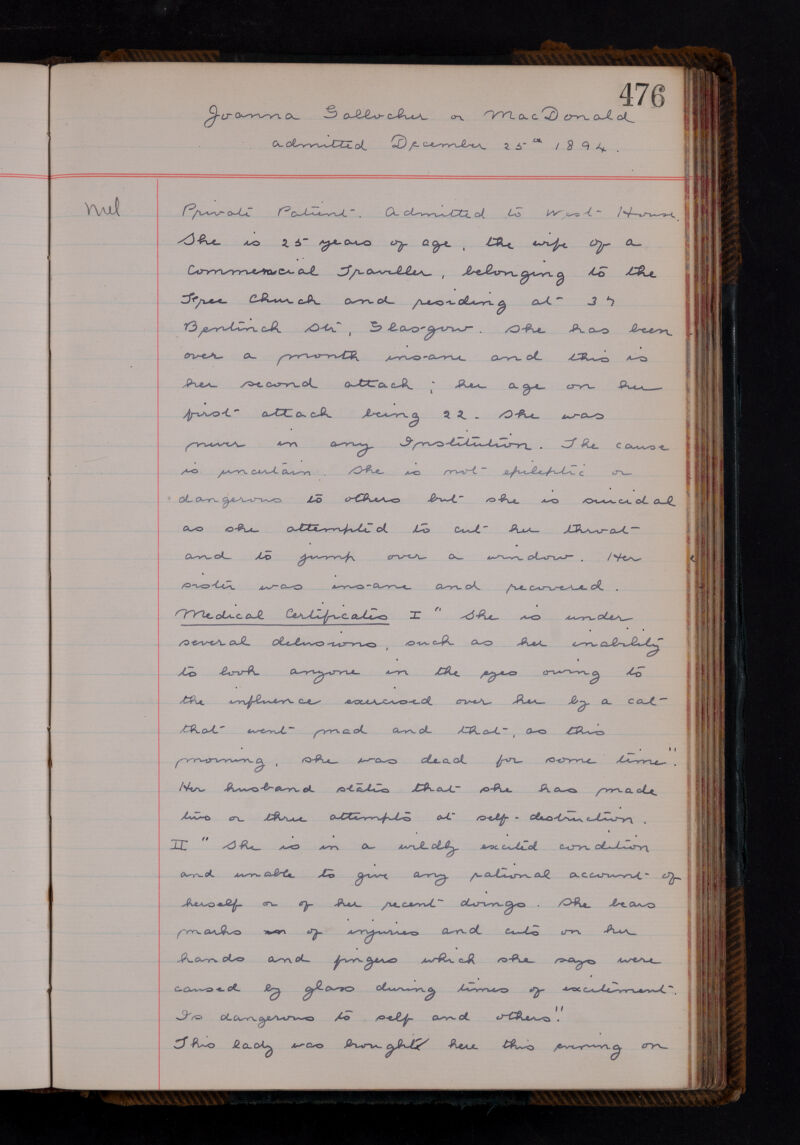 476
Joanna Gallocher or MacDonald
admitted December 25th 1894.
Mel
Private Patient. Admitted to West House.
She is 25 years of age, the wife of a
Commercial Traveller, belonging to the
Free Church and residing at 37
Bentinch Str, Glasgow. She has been
over a month insane and this is
her second attack; her age on her
first attack being 22. She was
never in any Institution. The cause
is uncertain. She is not epileptic or
dangerous to others but she is suicidal
as she attempted to cut her throat
and to jump over a window. Her
sister was insane and recovered.
Medical Certificates I " She is under
several delusions, such as her inability
to look anyone in the eyes owing to
the influence exercised over her by a cat
that went mad and that, as this
morning, she was dead for some time".
Her husband states that she has made
two or three attempts at self-destruction.
II " She is in a wildly excited condition
and unable to give any rational account of
herself or of her recent doings. She bears
marks of injuries and cuts on her
hands and fingers which she says were
caused by glass during times of excitement.
Is dangerous to self and others".
This lady was brought here this evening on